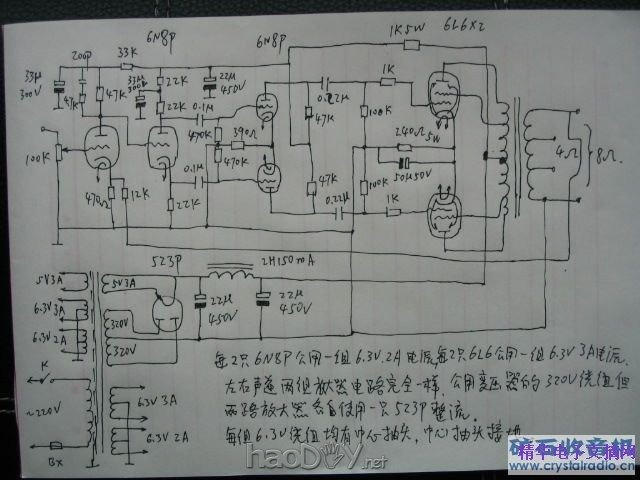 6N8P
6N8P
1K5W
6L6×2
200P
33K
33μ
300V
47K
47K
22K
33μ
300V
22K
22μ
450V
0.1μ
470K
390Ω
0.22μ
47K
1K
100K
240Ω
5W
50μ50V
4Ω
8Ω
100K
0.1μ
470K
47K
100K
0.22μ
1K
470Ω
12K
22K
5Z3P
2H150mA
5V3A
5V3A
6.3V3A
6.3V2A
320V
320V
22μ
450V
22μ
450V
K
~220V
BX
6.3V 3A
6.3V 2A
每2只6N8P公用一组6.3V.2A电流,每2只6L6公用一组6.3V3A电流.
左右声道两组放大器电路完全一样.公用变压器的320V绕组但
两路放大器各自使用一只5Z3P整流.
每组6.3V绕组均有中心抽头,中心抽头接地
haoDIY.net
www.crystalradio.cn